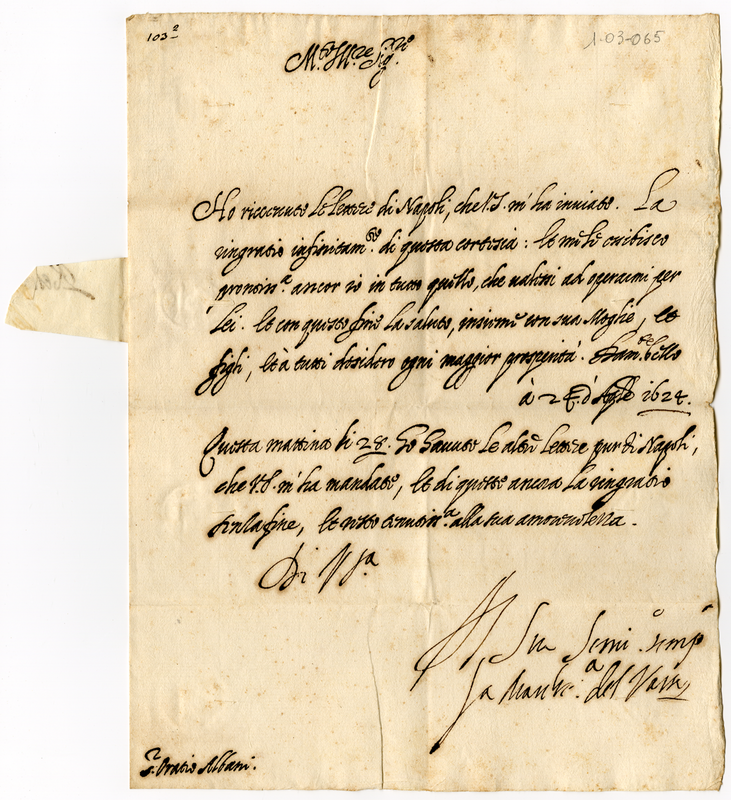 103 2
1-03-065
M.to Ill.re Sig.r mio
Ho riceuuto le lettere di Napoli, che V.S. m'ha inuiate. La
ringratio infinitam.te di questa cortesia: et mele esibisco
prontiss.a ancor io in tutto quello, che uaglia ad operarmi per
Lei. Et con questo fine la saluto, insieme con sua Moglie, et
figli, et à tutti desidero ogni maggior prosperità.
à 27. d'Ag.to 1628.
Questa mattina li 28. ho hauute le altre lettere pur di Napoli,
che V.S. m'ha mandate, et di queste ancora la ringratio
senza fine, et resto tenutiss.a alla sua amoreuolezza.
Di V.S.a
S.r Oratio Albani.